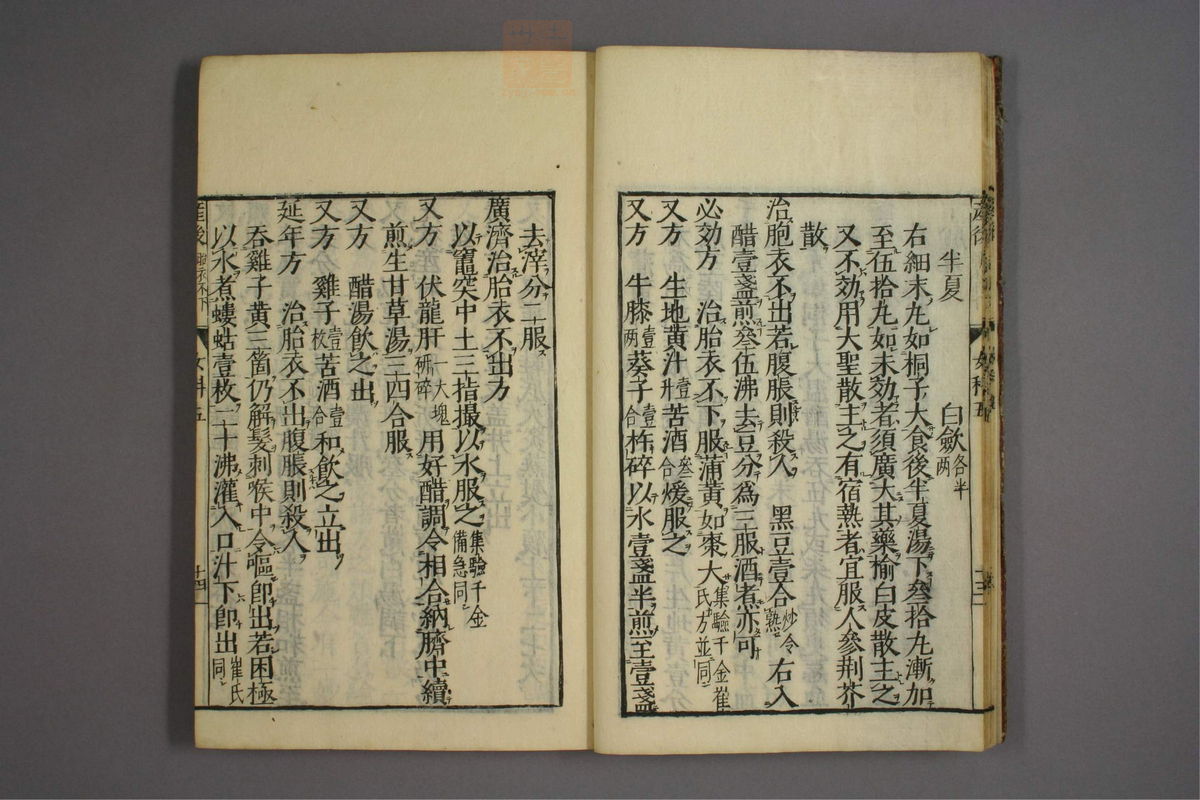 半夏　白歛各半两
右細末丸如桐子大食後半夏湯下叄拾丸漸加
至伍拾丸如未効者須廣大其藥榆白皮散主之
又不効用大聖散主之有宿熱者宜服人參荆芥
散
治胞衣不出若腹脹則殺人　黑豆壹合炒令熟右入
醋壹盞煎叄伍沸去豆分爲三服酒煮亦可
必効方　治胎衣不下服蒲黄如棗大集驗千金崔氏方並同
又方　生地黄汁壹升苦酒叄合煖服之
又方　牛膝壹两葵子壹合杵碎以水壹盞半煎至壹盞
去滓分二服
廣濟治胎衣不出方
以竈突中土三指撮以水服之集驗千金備急同
又方　伏龍肝一大塊研碎用好醋調令相合納臍中續
煎生甘草湯三四合服
又方　醋湯飲之出
又方　雞子壹枚苦酒壹合和飲之立出
延年方　治胎衣不出腹脹則殺人
吞雞子黄三箇仍解髮刺喉中令嘔即出若困極
以水煮螻蛄壹枚二十沸灌入口汁下即出崔氏同
産後　女科五　十四